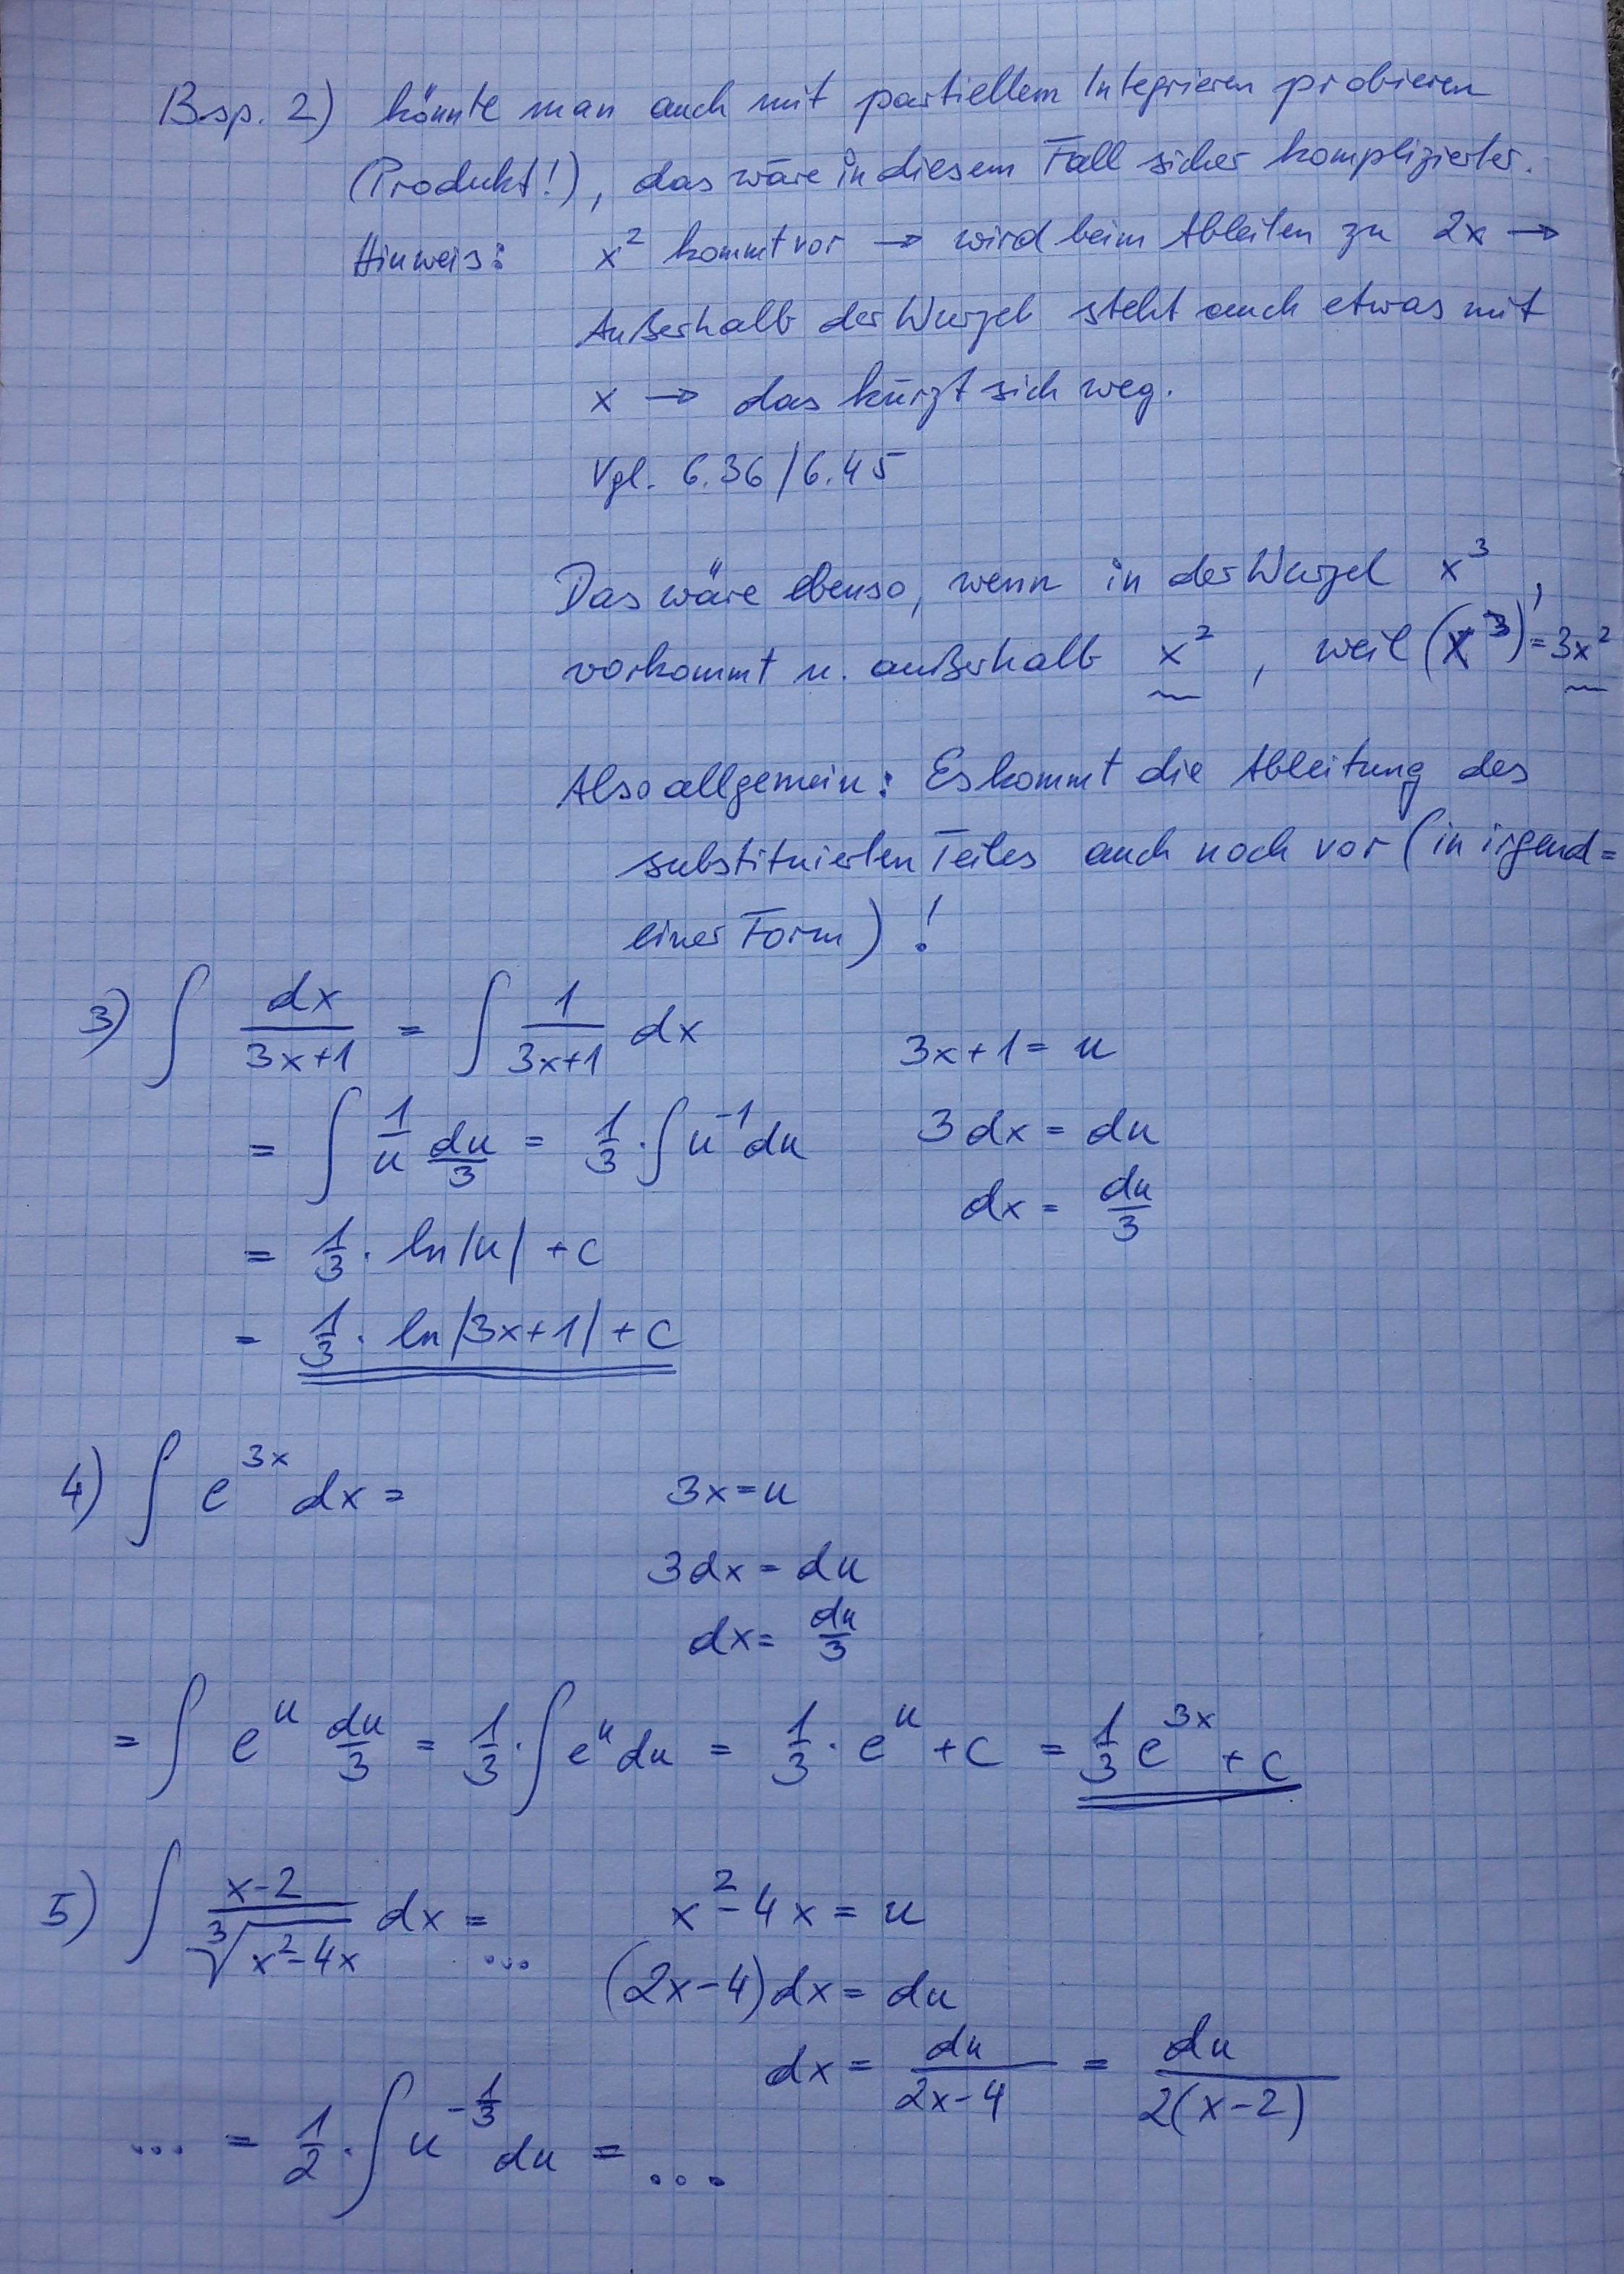 Bsp. 2) könnte man auch mit partiellem Integrieren probieren
(Produkt!), das wäre in diesem Fall sicher komplizierter.
Hinweis: x² kommt vor → wird beim Ableiten zu 2x →
Außerhalb der Wurzel steht auch etwas mit
x → das kürzt sich weg.
Vgl. 6.36/6.45
Das wäre ebenso, wenn in der Wurzel x³
vorkommt u. außerhalb x², weil (x³)' = 3x²
Also allgemein: Es kommt die Ableitung des
substituierten Teiles auch noch vor (in irgend=
einer Form)!
3) ∫ dx/(3x+1) = ∫ 1/(3x+1) dx 3x+1 = u
= ∫ 1/u du/3 = 1/3 · ∫ u⁻¹ du 3 dx = du
dx = du/3
= 1/3 · ln|u| + c
= 1/3 · ln|3x+1| + c
4) ∫ e^(3x) dx = 3x = u
3dx = du
dx = du/3
= ∫ e^u du/3 = 1/3 · ∫ e^u du = 1/3 · e^u + c = 1/3 e^(3x) + c
5) ∫ (x-2)/∛(x²-4x) dx = ... x² - 4x = u
(2x-4)dx = du
dx = du/(2x-4) = du/(2(x-2))
... = 1/2 · ∫ u^(-1/3) du = ...